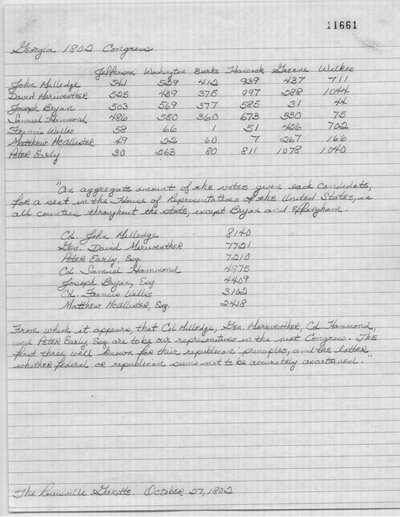 11661
Georgia 1802 Congress
Jefferson Washington Burke Hancock Greene Wilkes
John Milledge 541 539 412 939 437 711
David Meriwether 525 439 375 997 288 1044
Joseph Bryan 503 569 377 585 31 44
Samuel Hammond 486 550 360 673 350 75
Francis Willis 58 66 1 51 426 702
Matthew McAllister 49 22 60 7 267 166
Peter Early 30 263 80 811 1078 1040
"An aggregate amount of the votes given each Candidate,
for a seat in the House of Representatives of the United States, in
all counties throughout the state, except Bryan and Effingham.
Col. John Milledge 8140
Gen. David Meriwether 7721
Peter Early, Esq. 7210
Col Samuel Hammond 4975
Joseph Bryan, Esq 4409
Col. Francis Willis 3162
Matthew McAllister, Esq. 2418
From which it appears, that Col Milledge, Gen Meriwether, Col. Hammond,
and Peter Early Esq are to be our representatives in the next Congress. The
first three, well known for their republican principles, and the latter
whether federal or republican seems not to be accurately ascertained."
The Louisville Gazette. October 27, 1802